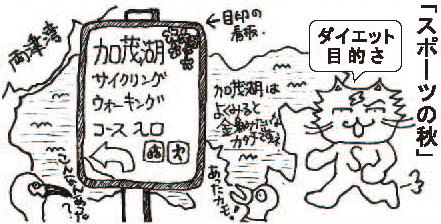 「スポーツの秋」
ダイエット
目的さ
←目印の
看板.
両津湾
加茂湖
サイクリング
ウォーキング
コース入口
加茂湖は
よくみると
カタチですネ
こんなんあった?
あたカモ!